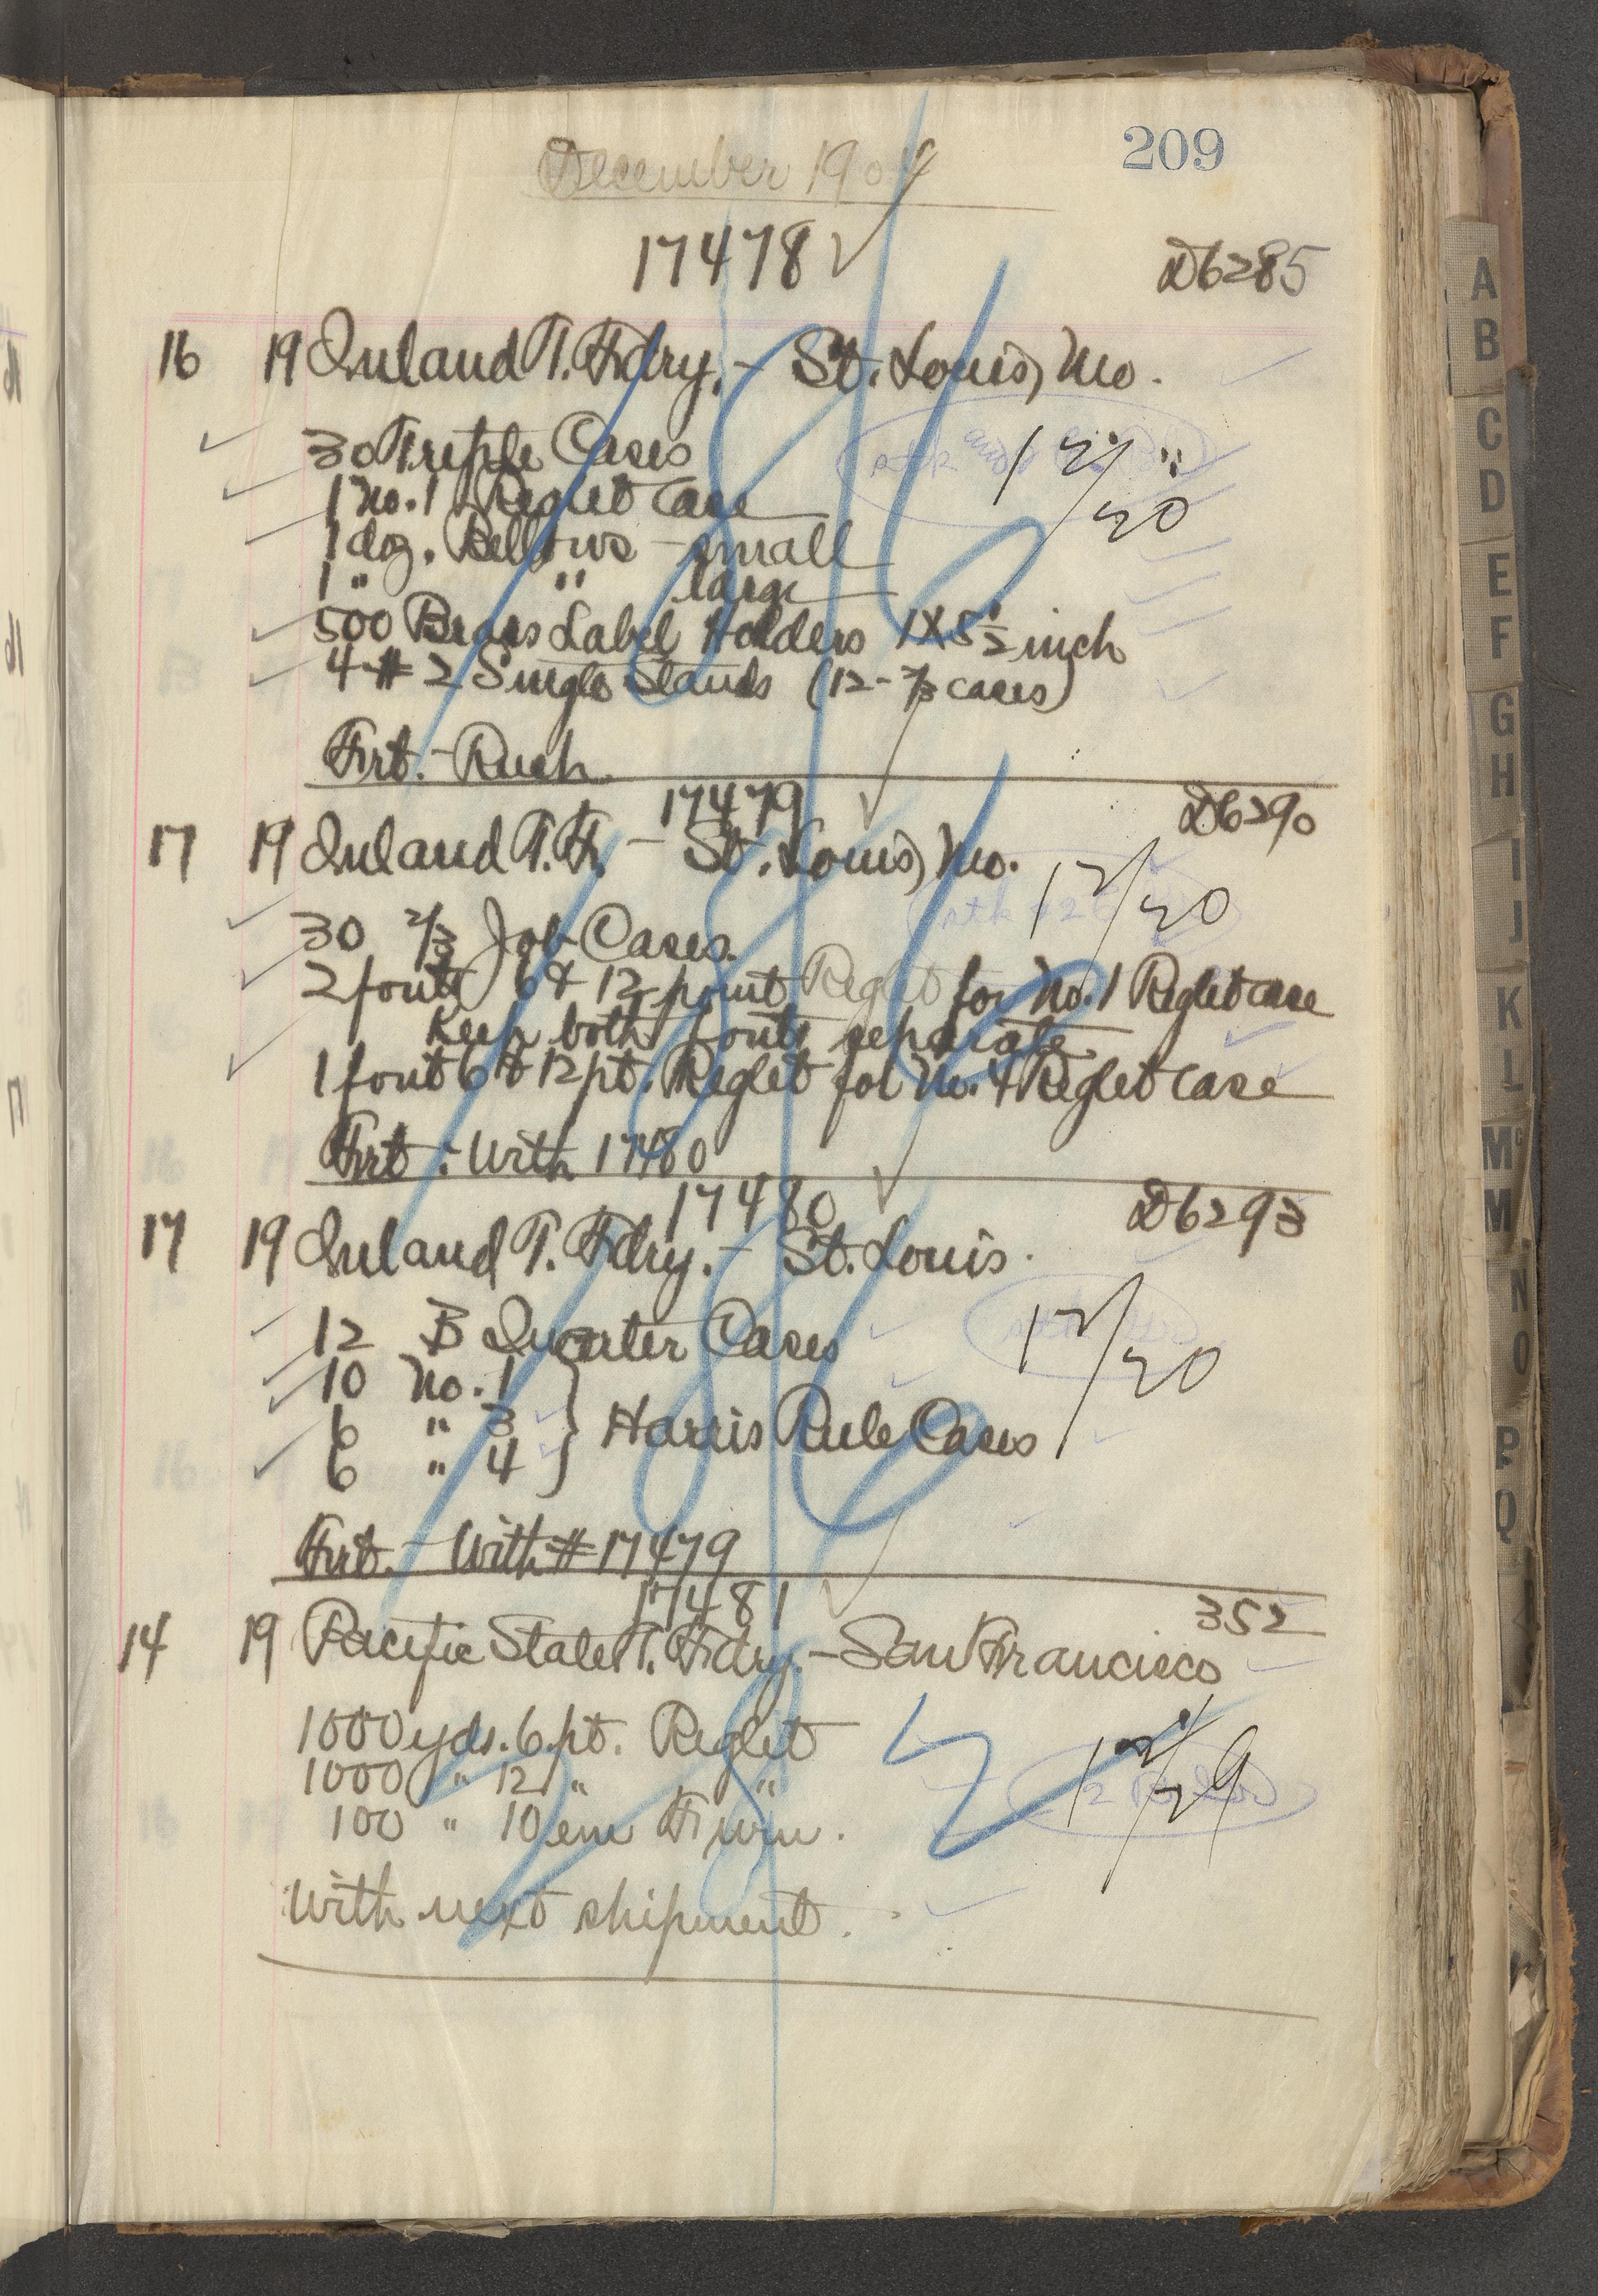 209
December 1904
17478 ✓ D6285
16 19 Inland T. Fdry. - St. Louis, Mo.
30 Triple Cases
1 No. 1 Reglet Case
1 doz. Bellows - small
1 " " large
500 Brass Label Holders 1 X 3 1/2 inch
4 # 2 Single Stands (12 - 2/3 cases)
12/20
Frt. - Rush.
17479 D6290
17 19 Inland T. F. - St. Louis, Mo.
12/20
30 2/3 Job Cases.
2 fonts 6 & 12 point Reglet for No. 1 Reglet case
Keep both fonts separate
1 font 6 & 12 pt. Reglet for No. 4 Reglet case
Frt: With 17480
17480 D6293
17 19 Inland T. Fdry. - St. Louis.
12 B Quarter Cases
12/20
10 No. 1
6 " 3 Harris Rule Cases
6 " 4
Frt. - With # 17479
17481 352
14 19 Pacific States T. Fdry. - San Francisco
1000 yds. 6 pt. Reglet
1000 " 12 " "
100 " 10 em Furn.
12/29
With next shipment.
A
B
C
D
E
F
G
H
I
J
K
L
Mc
M
N
O
P
Q